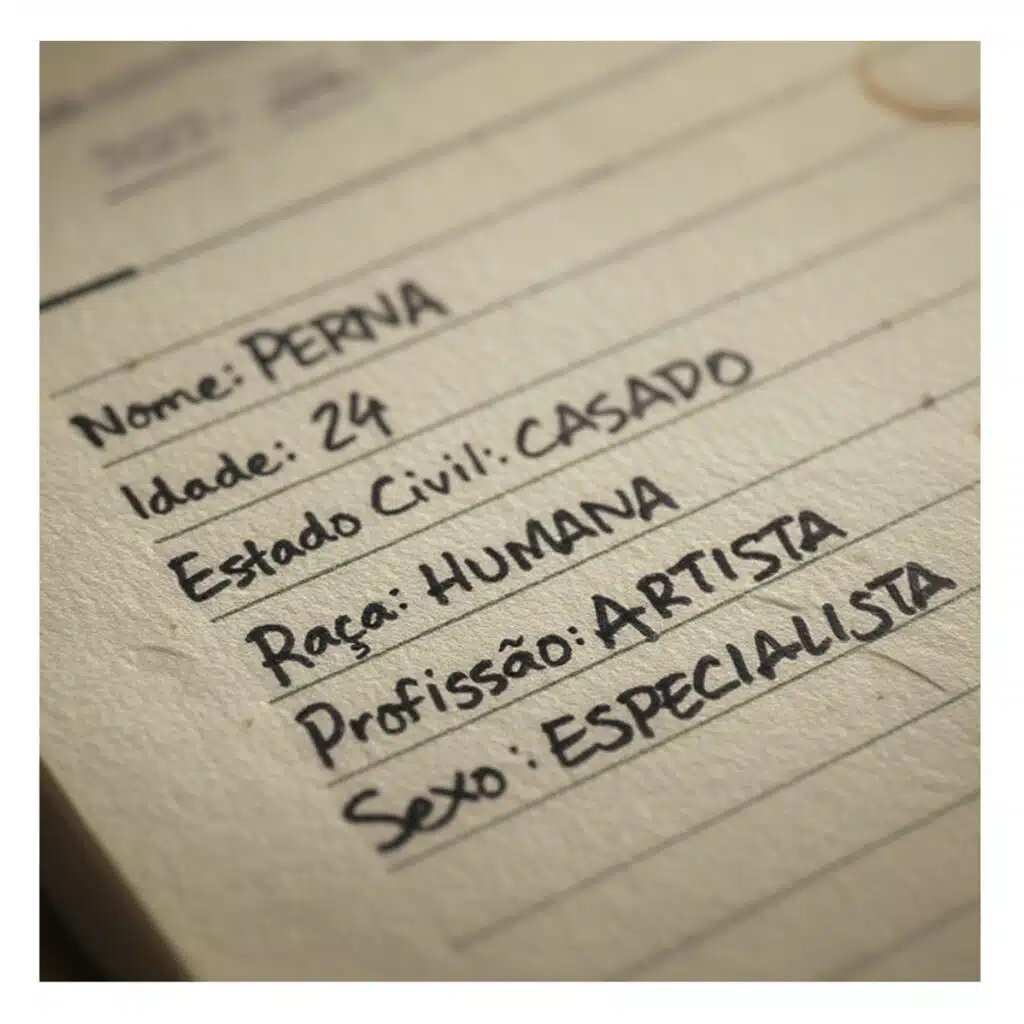 Nome: PERNA
Idade: 24
Estado Civil: CASADO
Raça: HUMANA
Profissão: ARTISTA
Sexo: ESPECIALISTA